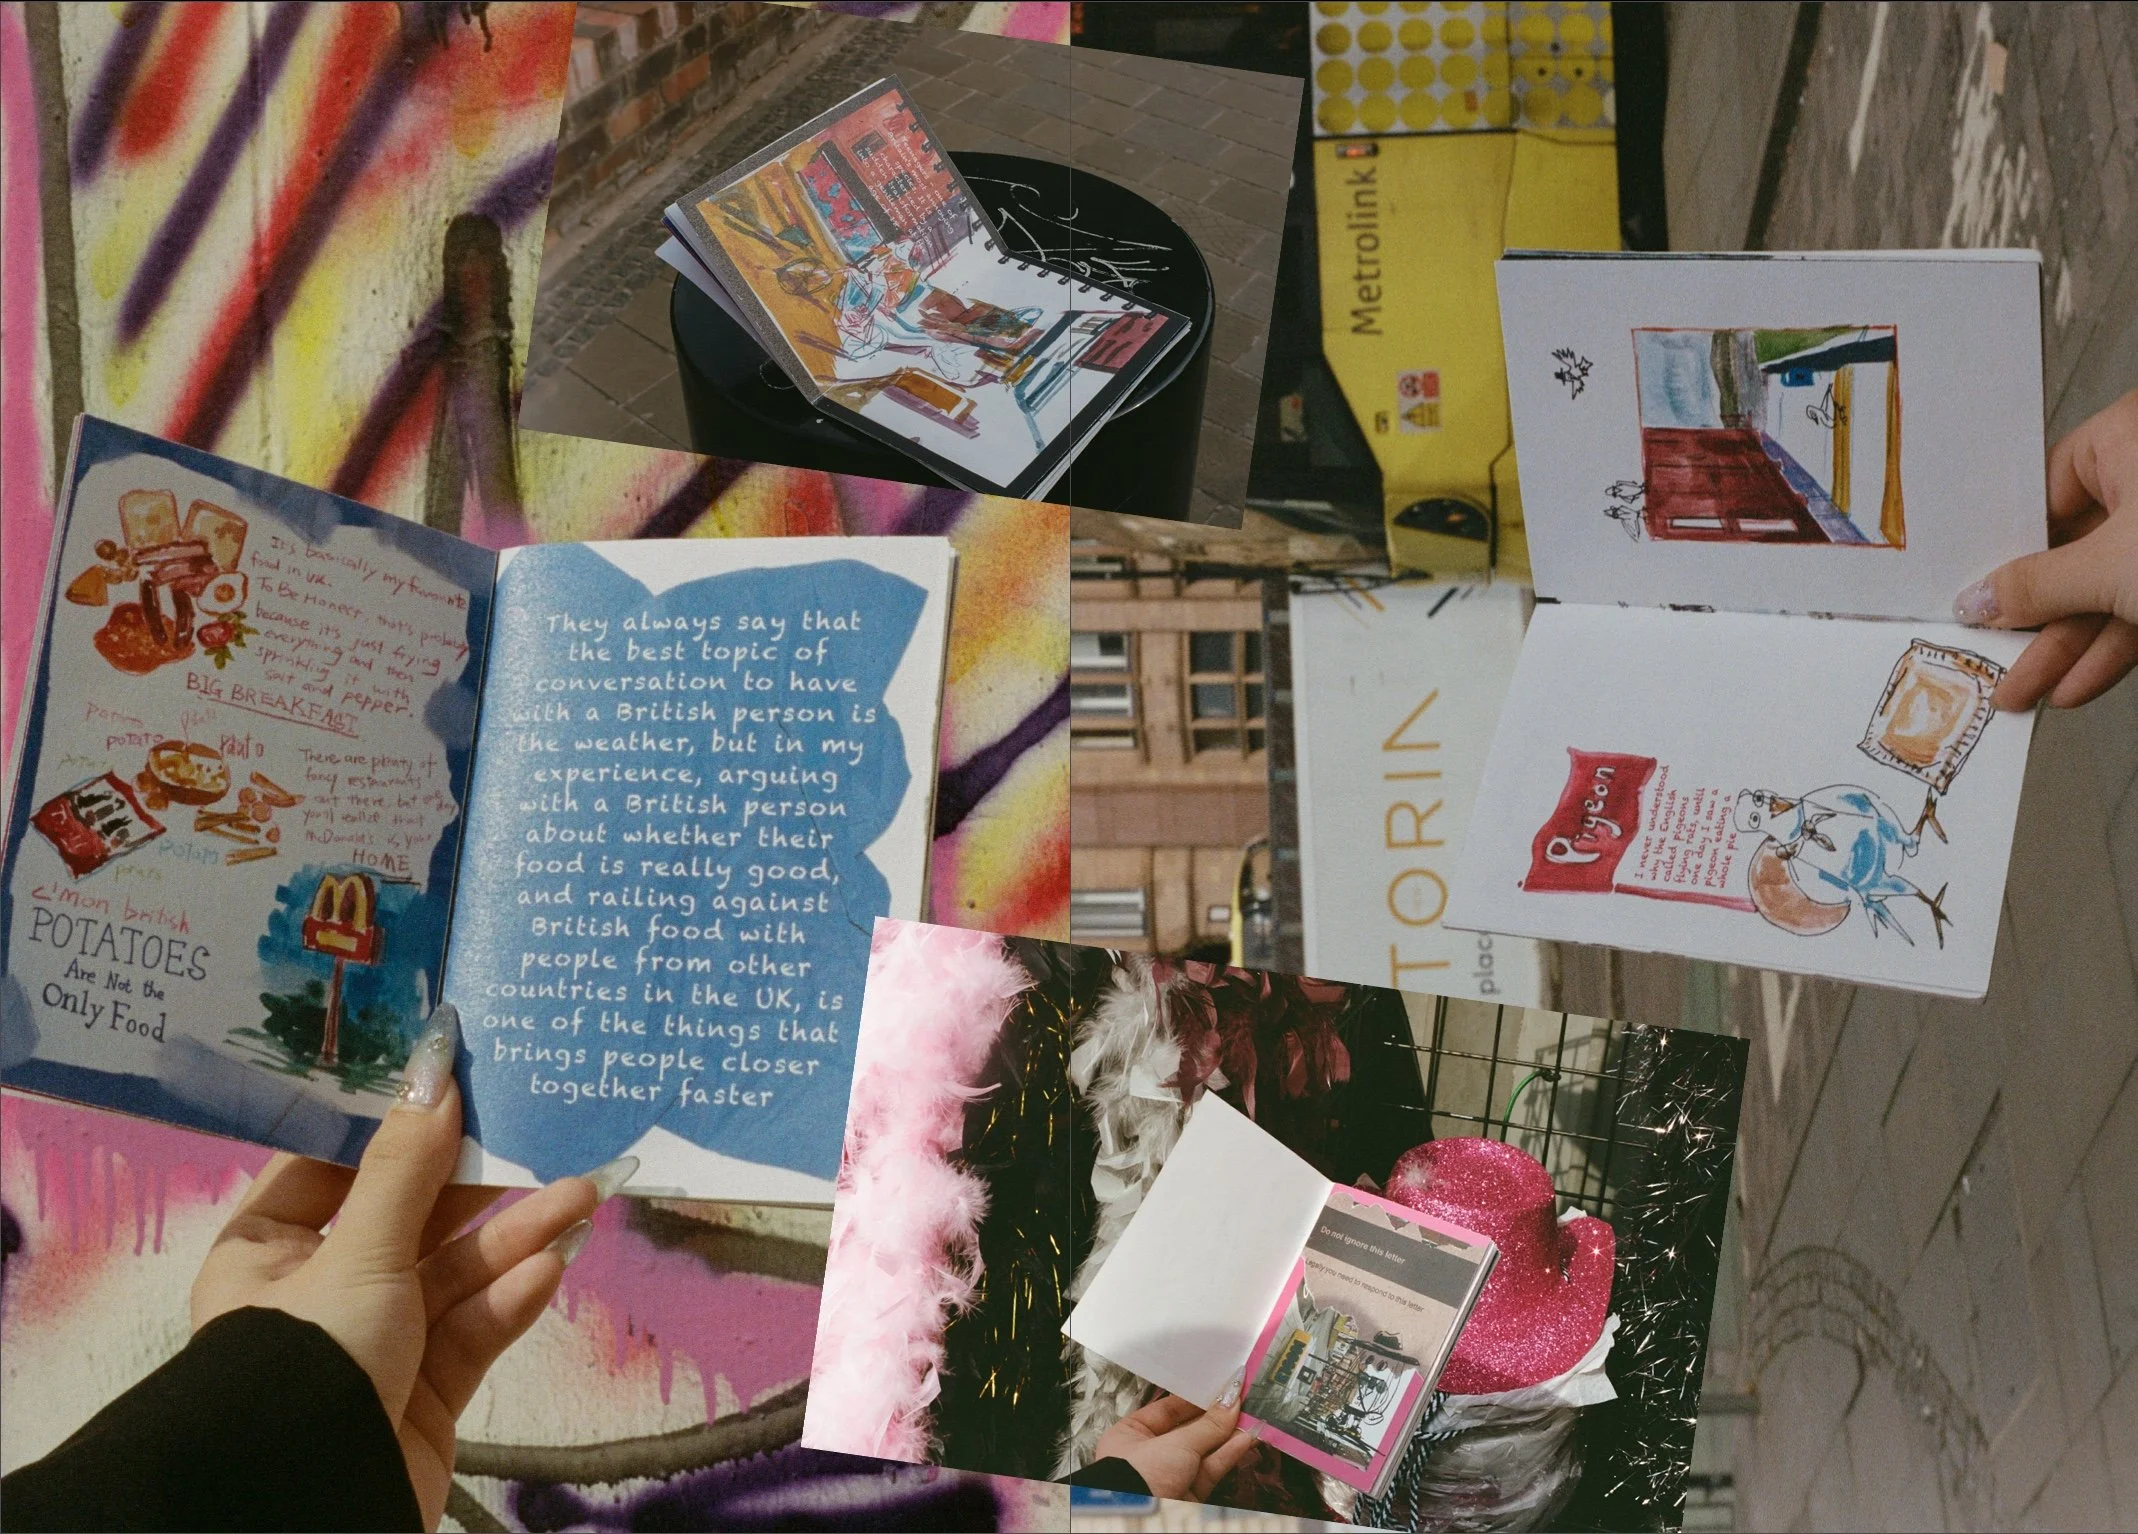 It's basically my favourite
food in UK.
To Be Honest, that's probably
because it's just frying
everything and then
sprinkling it with
salt and pepper.
BIG BREAKFAST
potato
potato
There are plenty of
fancy restaurants
out there, but one day
you'll realize that
McDonald's is your
HOME
potato
C'mon british
POTATOES
Are Not the
Only Food
They always say that
the best topic of
conversation to have
with a British person is
the weather, but in my
experience, arguing
with a British person
about whether their
food is really good,
and railing against
British food with
people from other
countries in the UK, is
one of the things that
brings people closer
together faster
Metrolink
TORIN
plac
Pigeon
I never understood
why the English
called pigeons
flying rats, until
one day I saw a
pigeon eating a
whole pie
Do not ignore this letter
Legally you need to respond to this letter